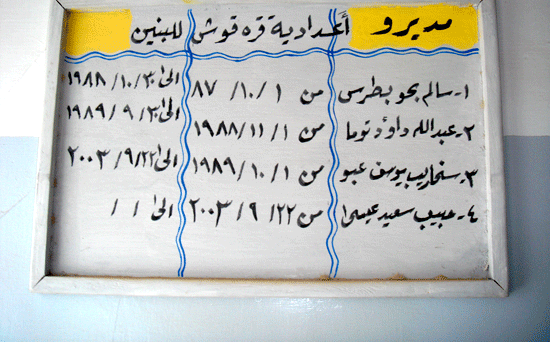 مديرو أعدادية قره قوش للبنين
١- سالم بحو بطرس من ١ /١٠/ ٨٧ الى ٣٠/ ١٠/ ١٩٨٨
٢- عبدالله داؤد توما من ١/ ١١/ ١٩٨٨ الى ٣٠/ ٩/ ١٩٨٩
٣- سنحاريب يوسف عبو من ١ /١٠/ ١٩٨٩ الى ٢٢/ ٩/ ٢٠٠٣
٤- حبيب سعيد عيسى من ٢٢/ ٩/ ٢٠٠٣ الى / /